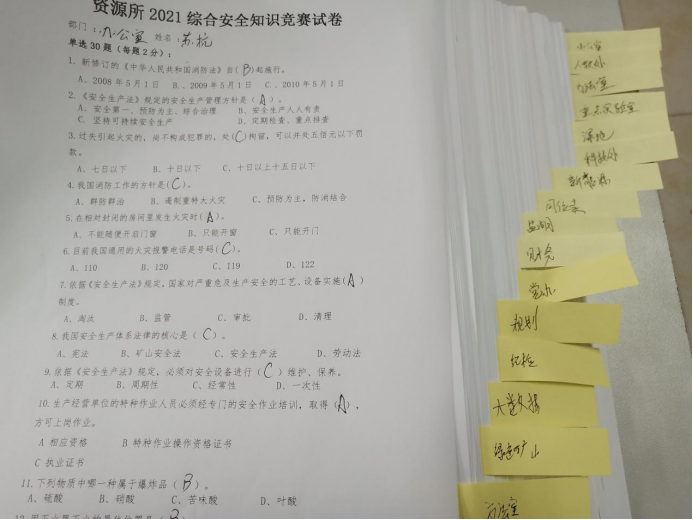 资源所 2021 综合安全知识竞赛试卷
部门：办公室 姓名：苏杭
单选 30 题（每题 2 分）：
1、新修订的《中华人民共和国消防法》自(B)起施行。
A、2008 年 5 月 1 日 B、、2009 年 5 月 1 日 C、、2010 年 5 月 1 日
2、《安全生产法》规定的安全生产管理方针是（A）。
A、安全第一、预防为主、综合治理 B、安全生产人人有责
C、坚持可持续安全生产 D、定期检查、重点排查
3、过失引起火灾的，尚不构成犯罪的，处(C)拘留，可以并处五佰元以下罚
款。
A、七日以下 B、十日以下 C、十日以上十五日以下
4、我国消防工作的方针是(C)。
A、群防群治 B、遏制重特大火灾 C、预防为主，防消结合
5、在相对封闭的房间里发生火灾时(A)。
A、不能随便开启门窗 B、只能开窗 C、只能开门
6、目前我国通用的火灾报警电话是号码(C)。
A、110 B、120 C、119 D、122
7、依据《安全生产法》规定，国家对严重危及生产安全的工艺、设备实施(A)
制度。
A、淘汰 B、监管 C、审批 D、清理
8、我国安全生产体系法律的核心是（C）。
A、宪法 B、矿山安全法 C、安全生产法 D、劳动法
9、依据《安全生产法》规定，必须对安全设备进行（C）维护、保养。
A、定期 B、周期性 C、经常性 D、一次性
10、生产经营单位的特种作业人员必须经专门的安全作业培训，取得（A），
方可上岗作业。
A 相应资格 B 特种作业操作资格证书
C 执业证书
11、下列物质中哪一种属于爆炸品（B）。
A、硫酸 B、硝酸 C、苦味酸 D、叶酸
办公室
人教处
重点实验室
科技处
同位素
财务
党办
规划
纪检
大数据
绿色矿山